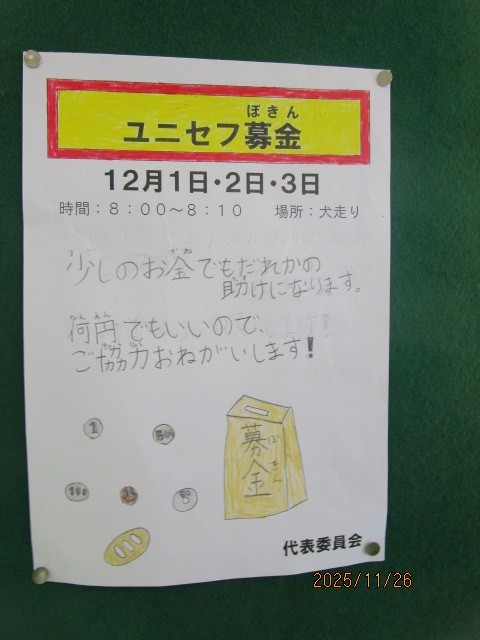 ぼきん
ユニセフ募金
12月1日・2日・3日
時間：８：００～８：１０　場所：犬走り
少しのお金でもだれかの
助けになります。
何円でもいいので、
ご協力おねがいします!
1
500
100
10
5
募金
ぼきん
代表委員会
2025/11/26